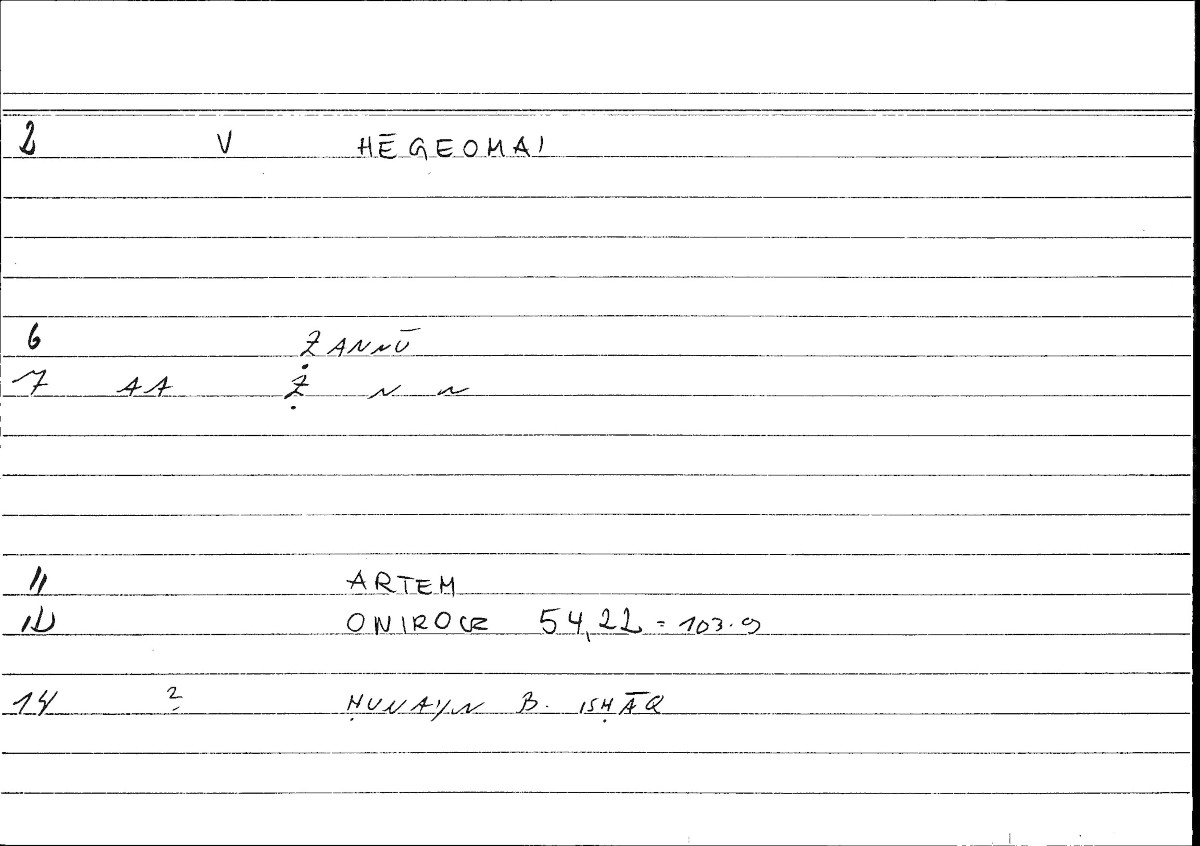 2 V HĒGEOMAI
6 ẒANNŪ
7 AA Ẓ N N
11 ARTEM
12 ONIROCR 54,22 = 103.9
14 2 ḤUNAYN B. ISḤĀQ